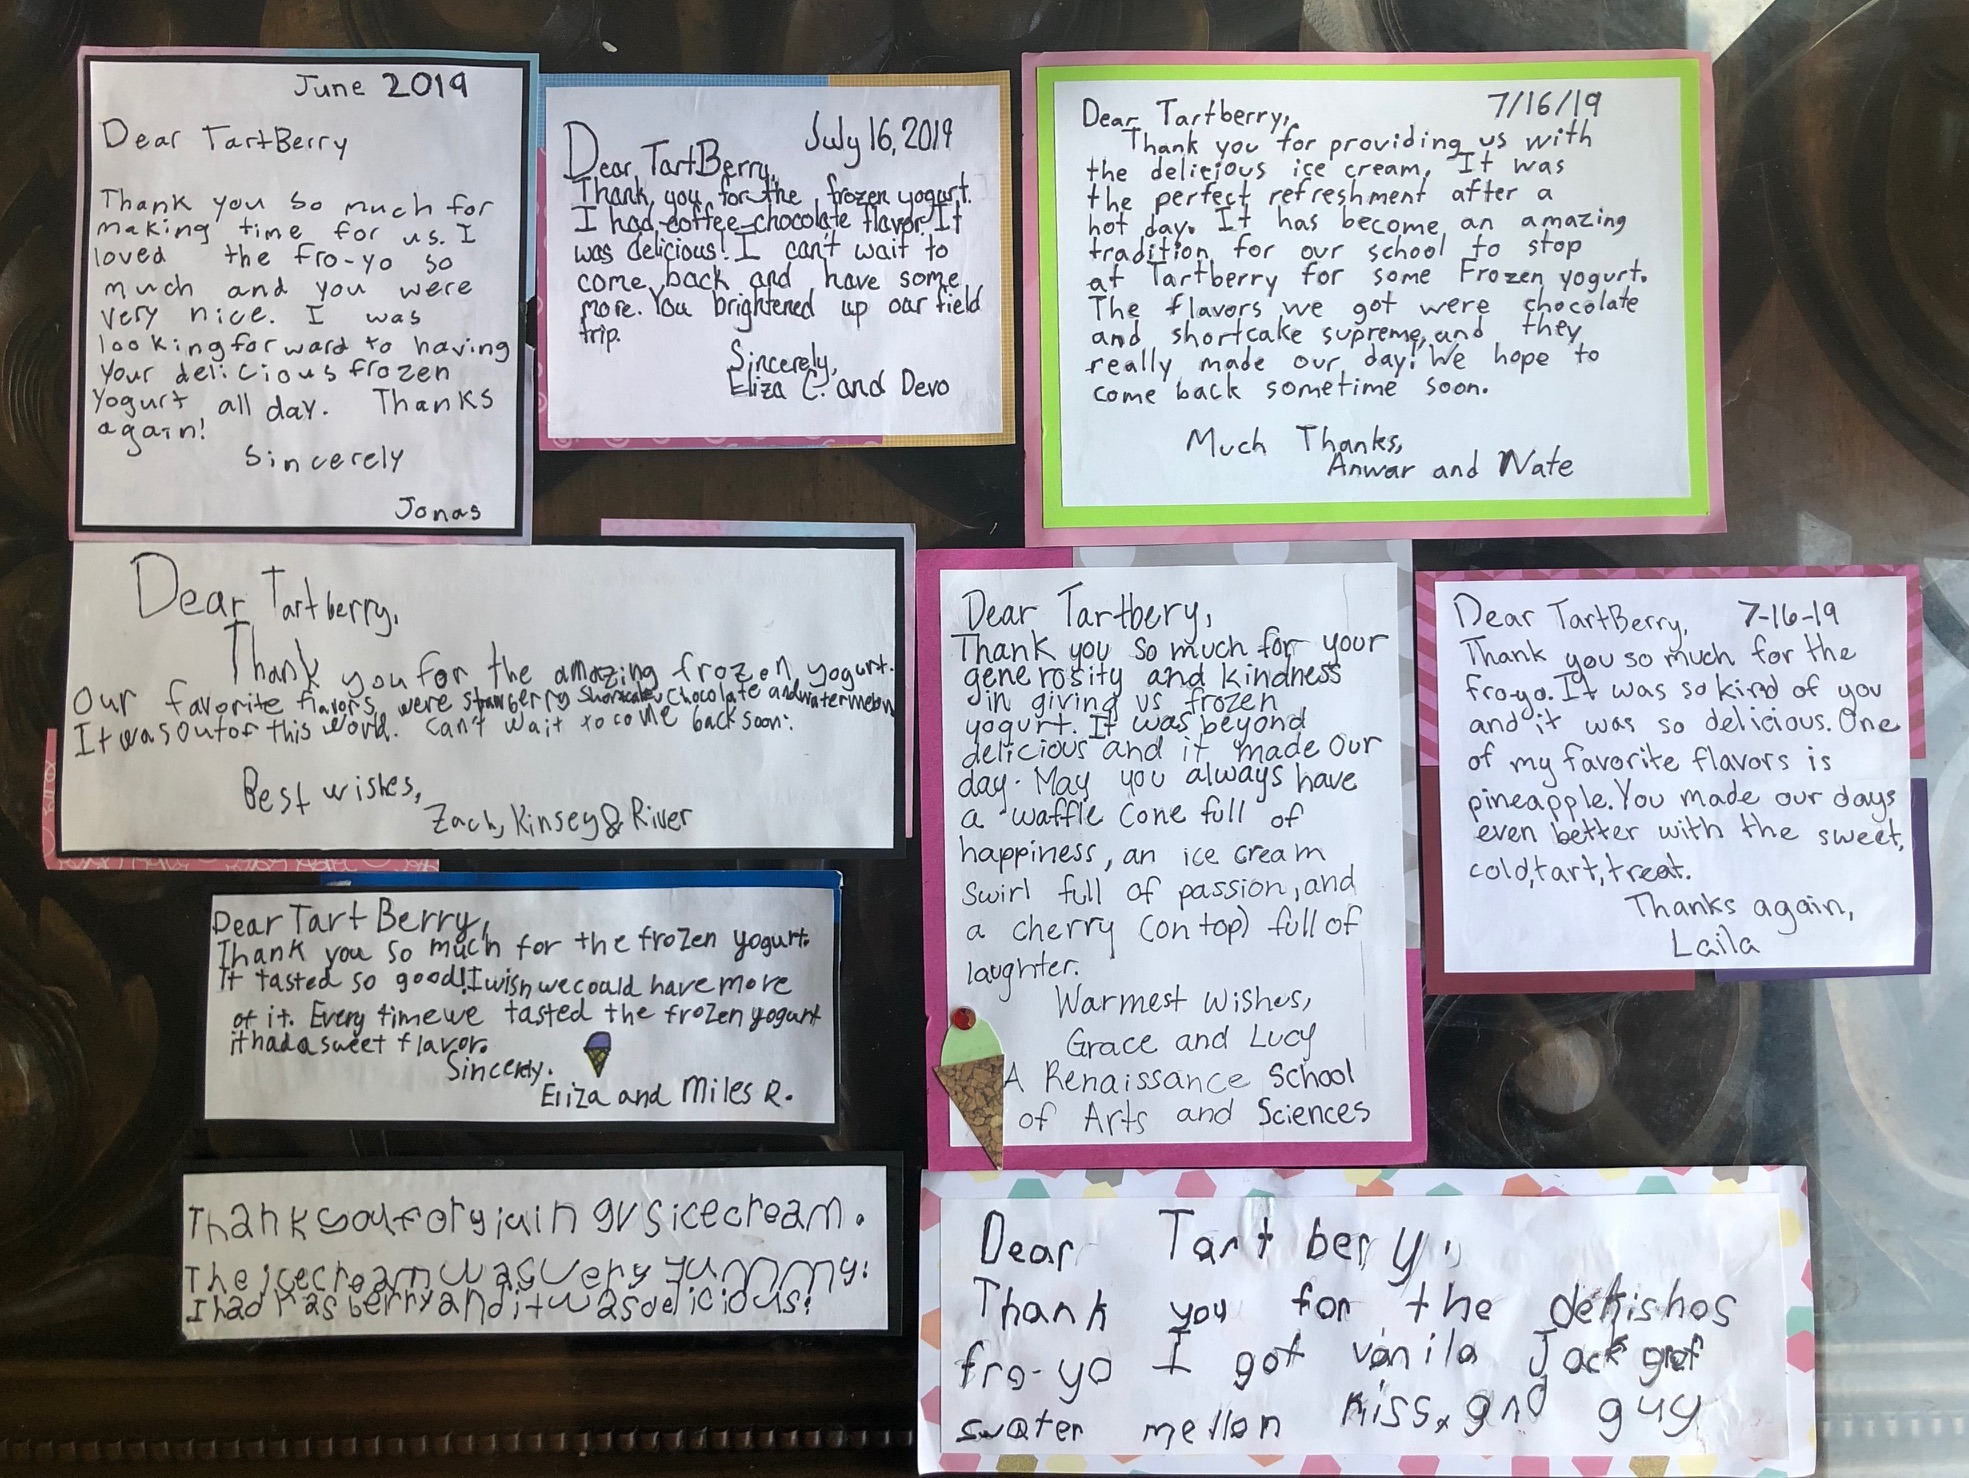 June 2019
Dear TartBerry
Thank you so much for
making time for us. I
loved the fro-yo so
much and you were
very nice. I was
looking forward to having
your delicious frozen
yogurt all day. Thanks
again!
Sincerely
Jonas
July 16, 2019
Dear TartBerry,
Thank you for the frozen yogurt.
I had coffee-chocolate flavor. It
was delicious! I can't wait to
come back and have some
more. You brightened up our field
trip.
Sincerely,
Eliza C. and Devo
7/16/19
Dear Tartberry,
Thank you for providing us with
the delicious ice cream. It was
the perfect refreshment after a
hot day. It has become an amazing
tradition for our school to stop
at Tartberry for some Frozen yogurt.
The flavors we got were chocolate
and shortcake supreme, and they
really made our day! We hope to
come back sometime soon.
Much Thanks,
Anwar and Nate
Dear Tartberry,
Thank you for the amazing frozen yogurt.
Our favorite flavors were strawberry shortcake, chocolate and watermelon
It was out of this world. Can't wait to come back soon.
Best wishes,
Zach, Kinsey & River
Dear Tartbery,
Thank you so much for your
generosity and kindness
in giving us frozen
yogurt. It was beyond
delicious and it made our
day. May you always have
a waffle cone full of
happiness, an ice cream
swirl full of passion, and
a cherry (on top) full of
laughter.
Warmest Wishes,
Grace and Lucy
A Renaissance School
of Arts and Sciences
Dear TartBerry, 7-16-19
Thank you so much for the
froyo. It was so kind of you
and it was so delicious. One
of my favorite flavors is
pineapple. You made our days
even better with the sweet,
cold, tart, treat.
Thanks again,
Laila
Dear Tart Berry,
Thank you so much for the frozen yogurt.
It tasted so good! I wish we could have more
of it. Every time we tasted the frozen yogurt
it had a sweet flavor.
Sincerely.
Eliza and Miles R.
Thank you for giving us icecream.
The icecream was very yummy.
I had rasberry and it was delicious!
Dear Tart berry,
Thank you for the
fro-yo I got vanila Jack got
swater mellon Kiss, and guy